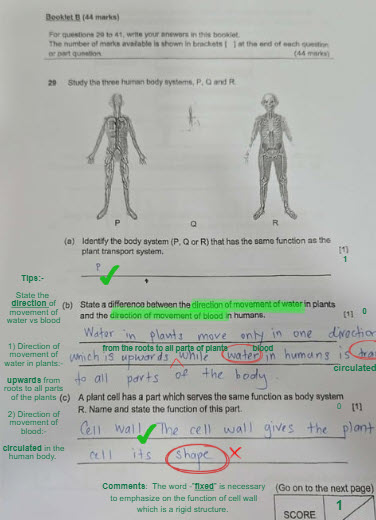 Booklet B (44 marks)
For questions 29 to 41, write your answers in this booklet.
The number of marks available is shown in brackets [ ] at the end of each question
or part question.
(44 marks)
29 Study the three human body systems, P, Q and R.
P Q R
(a) Identify the body system (P, Q or R) that has the same function as the
plant transport system.
[1]
1
P
Tips:-
State the
direction of
movement of
water vs blood
1) Direction of
movement of
water in plants:-
upwards from
roots to all parts
of the plants
2) Direction of
movement of
blood:-
circulated in the
human body.
(b) State a difference between the direction of movement of water in plants
and the direction of movement of blood in humans.
[1] 0
Water in plants move only in one direction
from the roots to all parts of plants blood
which is upwards while water in humans is
circulated
to all parts of the body.
(c) A plant cell has a part which serves the same function as body system
R. Name and state the function of this part.
0 [1]
Cell wall. The cell wall gives the plant
cell its shape
Comments: The word -"fixed" is necessary
to emphasize on the function of cell wall
which is a rigid structure.
(Go on to the next page)
SCORE
1
3